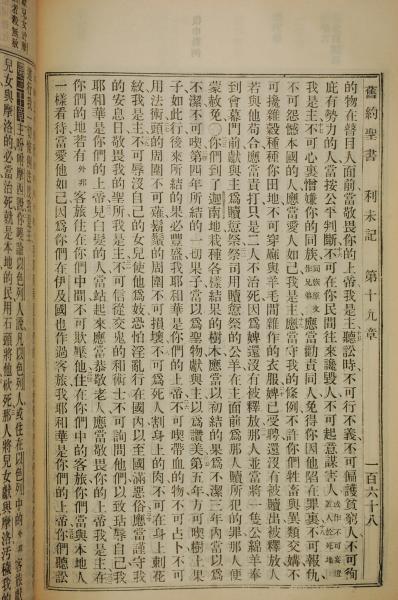 舊約聖書　利未記　第十九章　一百六十八
的物在瞽目人面前當敬畏你的上帝我是主聽訟時不可行不義不可偏護貧窮人不可徇
庇有勢力的人當按公平判斷不可在你民間往來讒毀人不可起意謀害人
我是主不可心裏憎嫌你的同族應當勸責同人免得你因他陷在罪裏不可報仇
不可怨憾本國的人應當愛人如己我是主應當守我的條例不許你們牲畜與異類交媾不
可攙雜穀種種你田地不可穿麻與羊毛間雜作的衣服婢已受聘還沒有被贖出被釋放人
若與他苟合應當責打只是二人不治死因爲婢還沒有被釋放那人並當將一隻公綿羊奉
到會幕門前獻與主爲贖愆祭祭司用贖愆祭的公羊在主面前爲那人贖所犯的罪那人便
蒙赦免〇你們到了迦南地栽種各樣結果的樹木應當以初結的果爲不潔三年內當以爲
不潔不可喫第四年所結的一切果子當以爲聖物獻與主以爲讚美第五年方可喫樹上果
子如此行後來所結的果必豐盛我耶和華是你們的上帝不可喫帶血的物不可占卜不可
用法術頭的周圍不可薙鬚鬢的周圍不可損壞不可爲死人割身上的肉不可在身上刺花
紋我是主不可辱沒自己的女兒使他爲妓恐怕淫亂行在國內以至國滿惡俗應當謹守我
的安息日敬畏我的聖所我是主不可信從交鬼的和術士不可詢問他們以致玷辱自己我
耶和華是你們的上帝見白髮的人當站起來應當恭敬老人應當敬畏你的上帝我是主在
你們的地不可欺壓他住在你們中間的客旅你們當與本地人
一樣看待當愛他如己因爲你們在伊及國也作過客旅我耶和華是你們的上帝你們聽訟
主呼呼摩西說你要諭以色列人說凡以色列人或住在以色列中的外邦客旅獻
兒女與摩洛的必當治死就是本地的民用石頭將他砍死那人將兒女獻與摩洛污穢我的